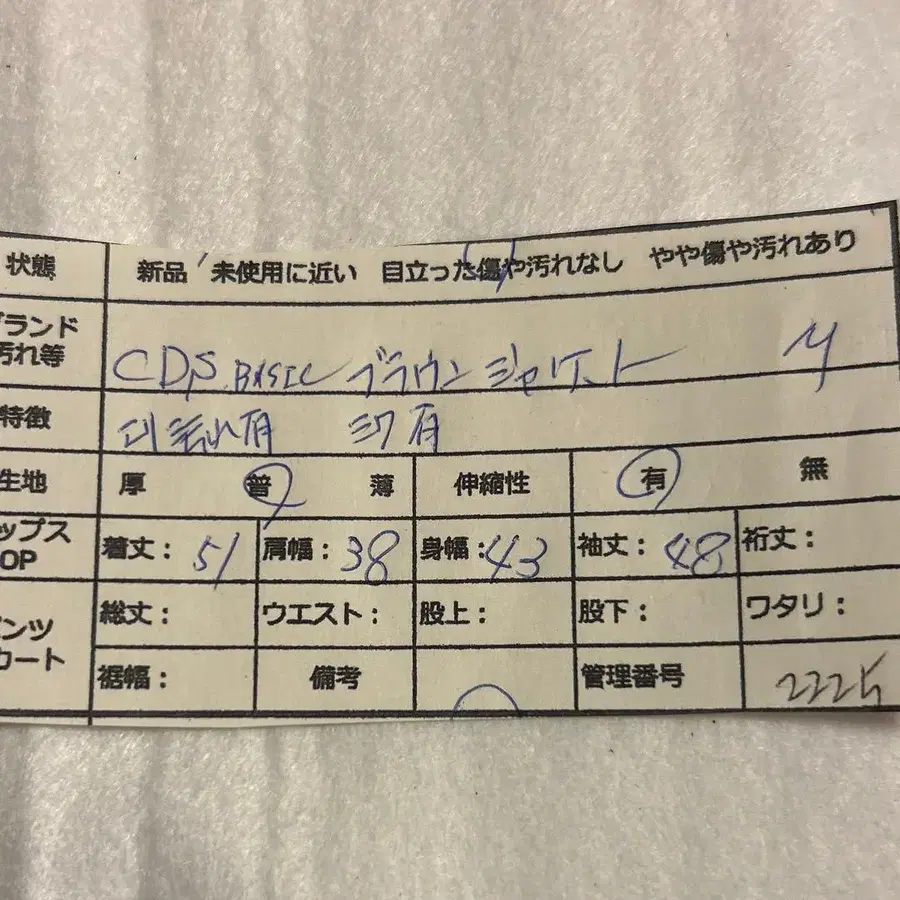 状態 新品 未使用に近い 目立った傷や汚れなし やや傷や汚れあり
ランド
汚れ等 CDS.BASIC ブラウンジャケット M
特徴 毛玉有 シワ有
生地 厚 普 薄 伸縮性 有 無
ップス
OP 着丈: 51 肩幅: 38 身幅: 43 袖丈: 48 裄丈:
総丈: ウエスト: 股上: 股下: ワタリ:
ンツ
カート 裾幅: 備考 管理番号 2225